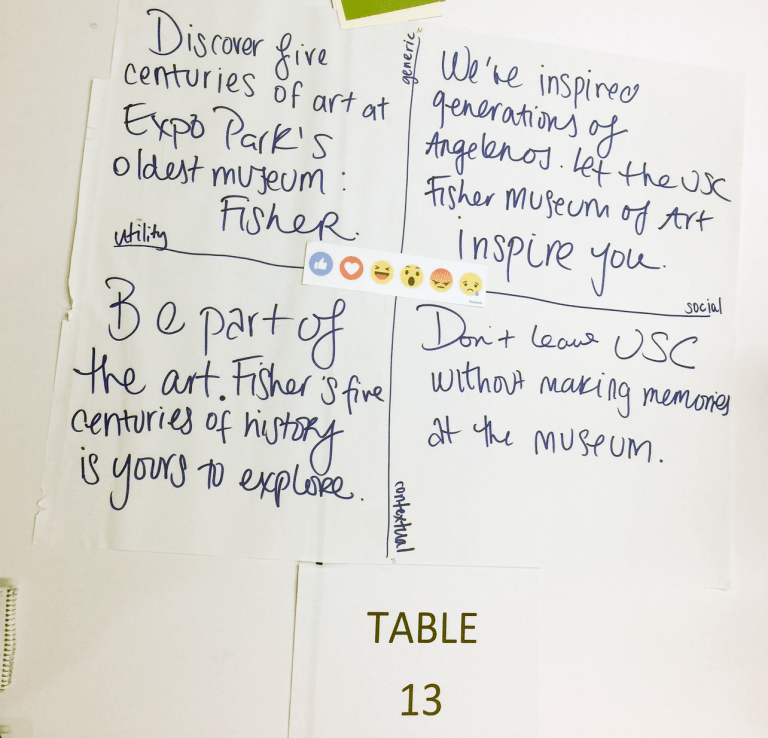 Discover five
centuries of art at
Expo Park's
oldest museum:
Fisher.
generic
We've inspired
generations of
Angelenos. Let the USC
Fisher Museum of Art
inspire you.
utility
social
Be part of
the art. Fisher's five
centuries of history
is yours to explore.
Don't leave USC
without making memories
at the museum.
contextual
TABLE
13